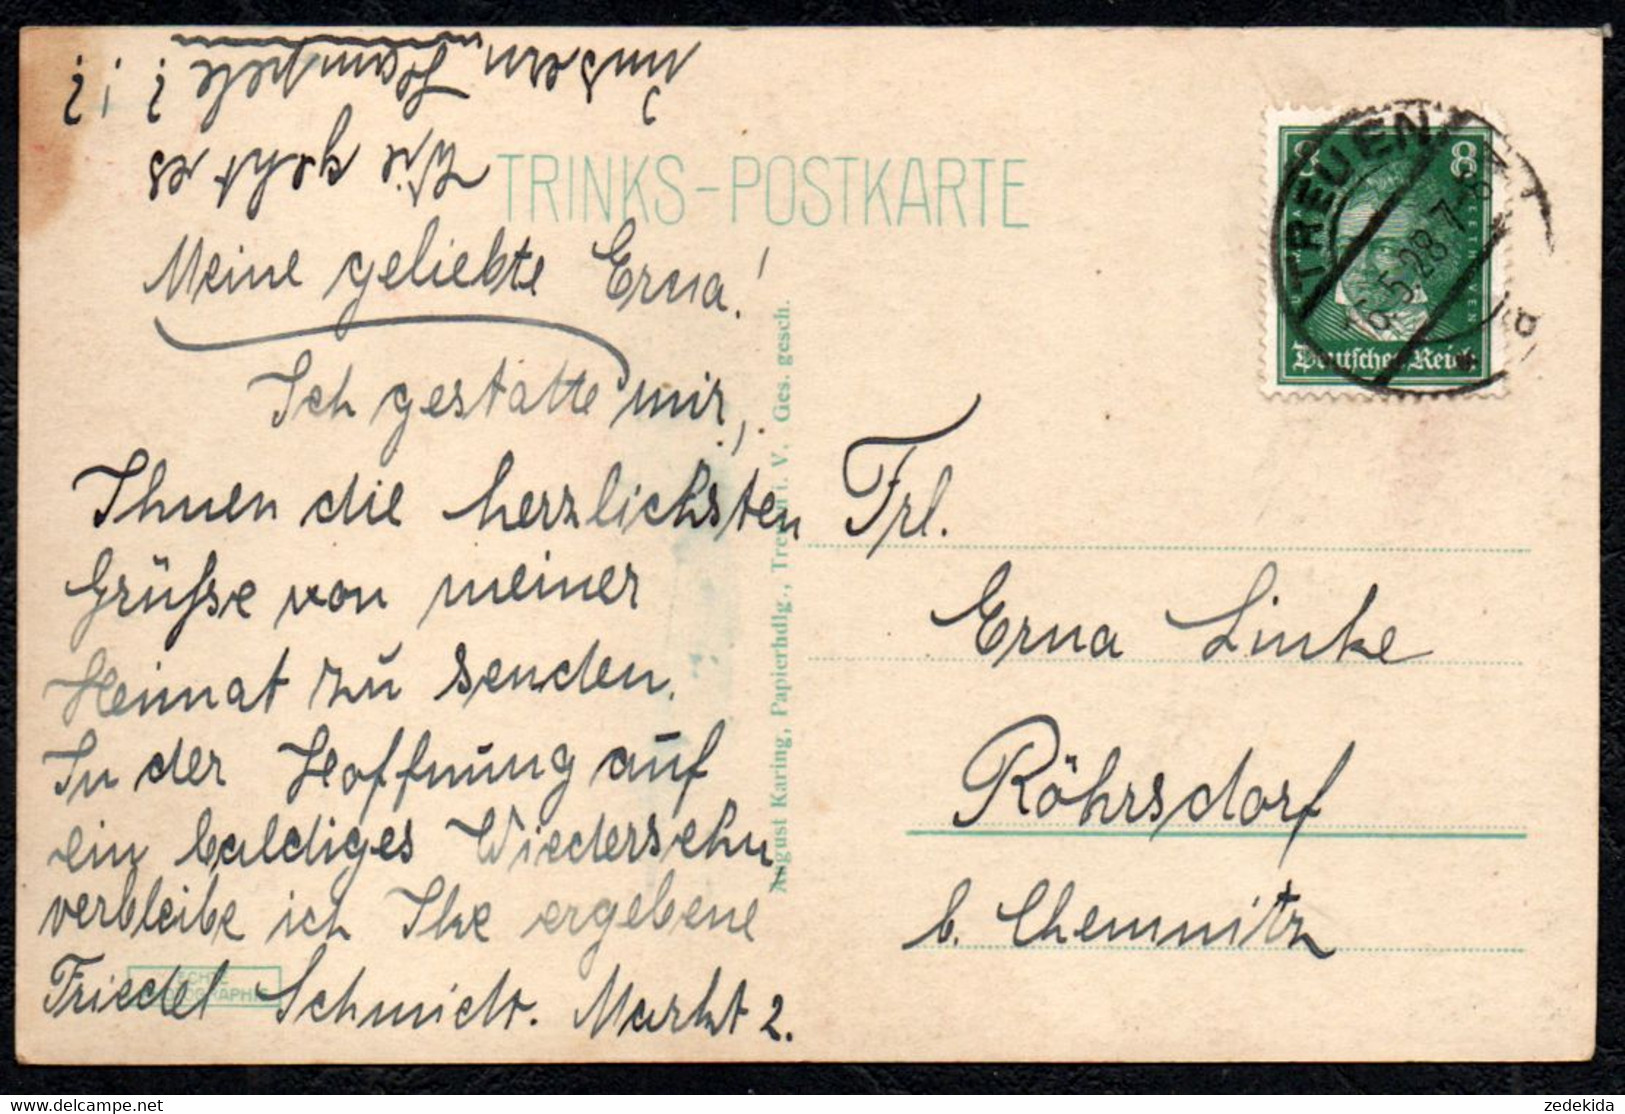 TRINKS-POSTKARTE
Meine geliebte Erna!
Ich gestatte mir,
Ihnen die herzlichsten
Grüße von meiner
Heimat zu senden.
In der Hoffnung auf
ein baldiges Wiedersehn
verbleibe ich Ihre ergebene
Friedel Schmidt. Markt 2.
Wie geht es
unsern
August Karing, Papierhdlg., Treuen i. V. Ges. gesch.
TREUEN
6.5.28.7-8
8 8
Deutsches Reich
Frl.
Erna Linke
Röhrsdorf
b. Chemnitz
zedekida